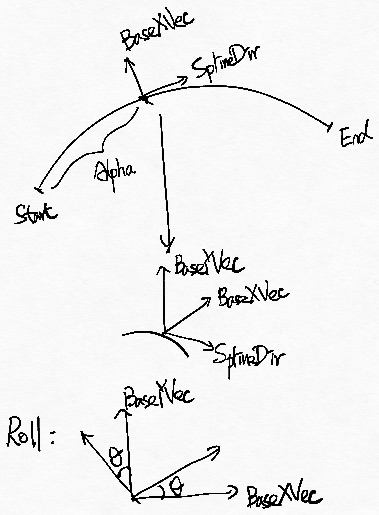 BaseYVec
SplineDir
Alpha
End
Start
BaseYVec
BaseXVec
SplineDir
BaseYVec
Roll :
θ
θ
BaseXVec